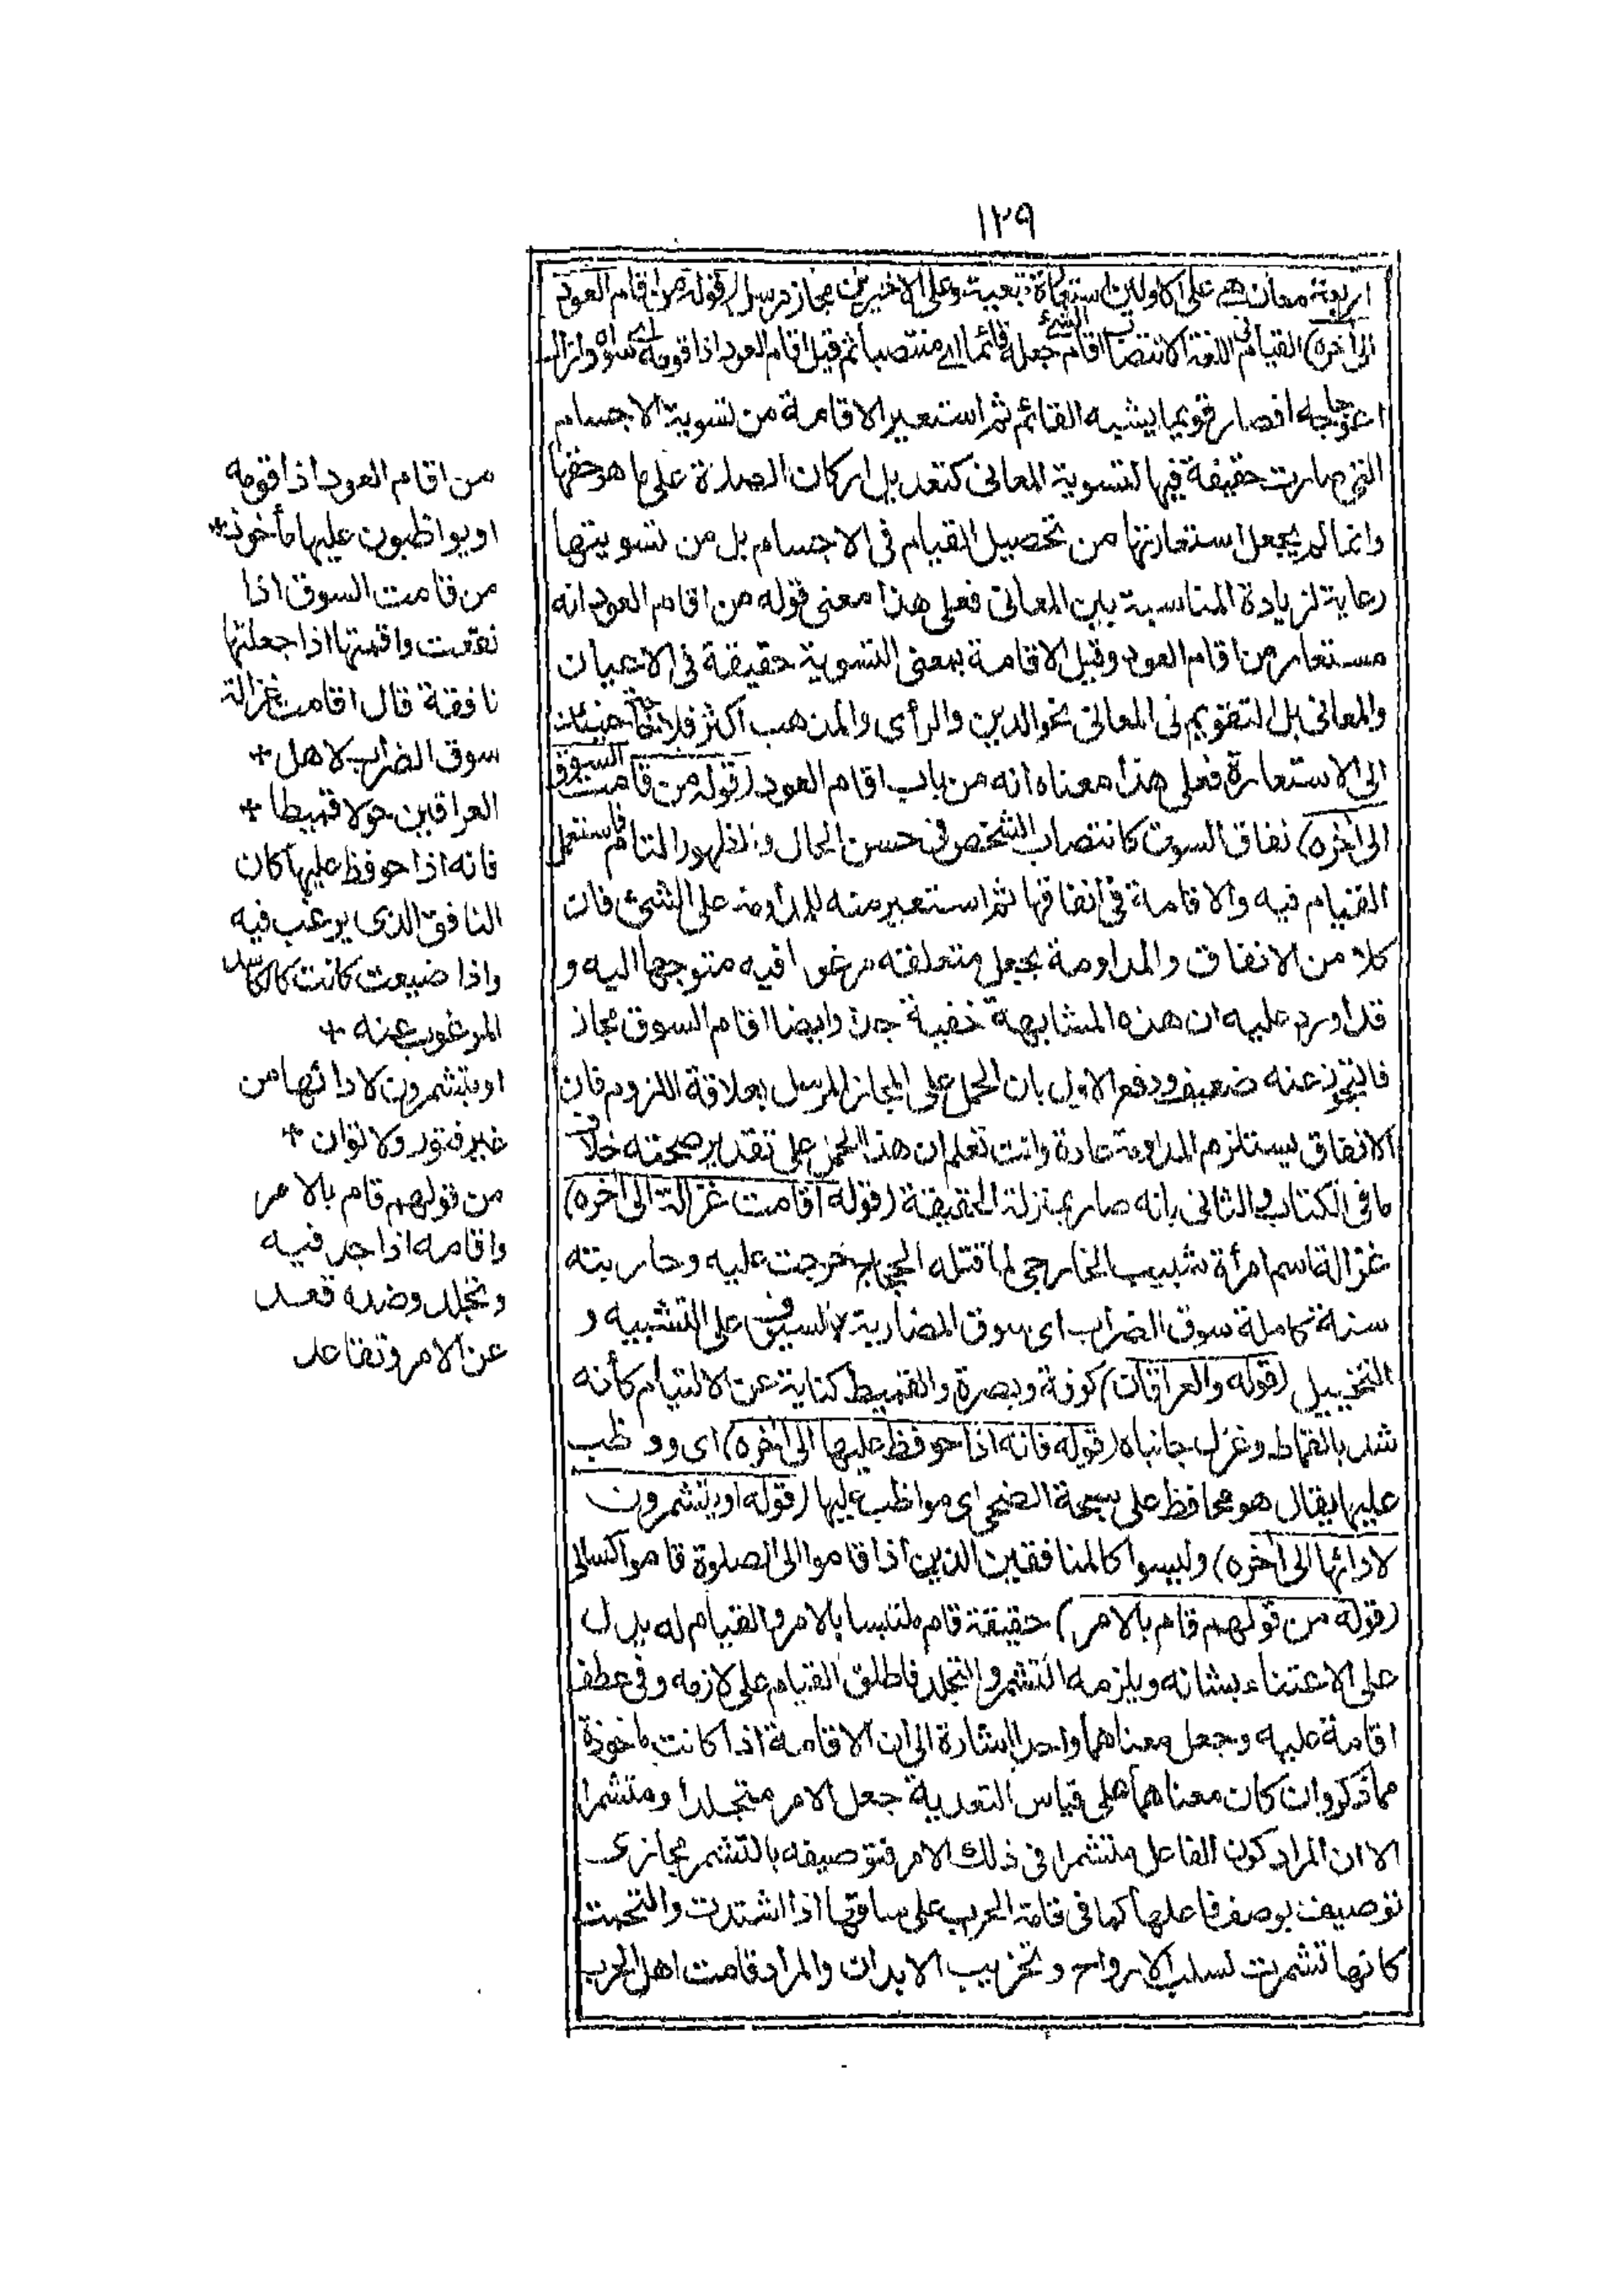 ١٢٩
اربعة معان هى على الاولين استعارة تبعية وعلى الاخيرين مجاز مرسل (قوله من اقام العود
الى اخره) القيام فى اللغة الانتصاب اقام الشئ جعله قائما اى منتصبا ثم قيل اقام العود اذا قومه اى سواه وازال
اعوجاجه فصار قويما يشبه القائم ثم استعير الاقامة من تسوية الاجسام
التى صارت حقيقة فيها لتسوية المعانى كتعديل اركان الصلاة على ما هو حقها
وانما لم يجعل استعارتها من تحصيل القيام فى الاجسام بل من تسويتها
رعاية لزيادة المناسبة بين المعانى فعلى هذا معنى قوله من اقام العود انه
مستعار من اقام العود وقيل الاقامة بمعنى التسوية حقيقة فى الاعيان
والمعانى بل التقويم فى المعانى نحو الدين والرأى والمذهب اكثر فلا حاجة حينئذ
الى الاستعارة فعلى هذا معناه انه من باب اقام العود (قوله من قامت السوق
الى اخره) نفاق السوق كانتصاب الشخص فى حسن الحال والظهور التام فاستعمل
القيام فيه والاقامة فى انفاقها ثم استعير منه للمداومة على الشئ فان
كلا من الانفاق والمداومة يجعل متعلقه مرغوبا فيه متوجها اليه و
قد اورد عليه ان هذه المشابهة خفية جدا وايضا اقام السوق مجاز
فالتجوز عنه ضعيف ودفع الاول بان الحمل على المجاز المرسل بعلاقة اللزوم فان
الانفاق يستلزم المداومة عادة وانت تعلم ان هذا الحمل على تقدير صحته خلاف
ما فى الكتاب والثانى بانه صار بمنزلة الحقيقة (قوله اقامت غزالة الى اخره)
غزالة اسم امرأة شبيب الخارجى لما قتله الحجاج خرجت عليه وحاربته
سنة كاملة سوق الضراب اى سوق المضاربة بالسيوف على التشبيه و
التخييل (قوله والعراقان) كوفة وبصرة والقميط كناية عن الالتيام كأنه
شد بالقماط وغزل جانباه (قوله فانه اذا حوفظ عليها الى اخره) اى ووظب
عليها يقال هو محافظ على سبحة الضحى اى مواظب عليها (قوله او يتشمرون
لادائها الى اخره) وليسوا كالمنافقين الذين اذا قاموا الى الصلوة قاموا كسالى
(قوله من قولهم قام بالامر) حقيقة قام ملتبسا بالامر والقيام له يدل
على الاعتناء بشانه ويلزمه التشمر والتجلد فاطلق القيام على لازمه وفى عطف
اقامة عليه وجعل معناهما واحدا اشارة الى ان الاقامة اذا كانت ماخوذة
مما ذكر وان كان معناهما على قياس التعدية جعل الامر متجلدا ومتشمرا
الا ان المراد كون الفاعل متشمرا فى ذلك الامر فتوصيفه بالتشمر مجازى
توصيف بوصف فاعلها كما فى قامة الحرب على ساقها اذا اشتدت والتحمت
كانها تشمرت لسلب الارواح وتخريب الابدان والمراد قامت اهل الحرب
من اقام العود اذا قومه
او يواظبون عليها مأخوذ*
من قامت السوق اذا
نفقت واقمتها اذا جعلتها
نافقة قال اقامت غزالة
سوق الضراب لاهل +
العراقين حولا قميطا +
فانه اذا حوفظ عليها كان
النافق الذى يرغب فيه
واذا ضيعت كانت كالكاسد
المرغوب عنه +
او يتشمرون لادائها من
غير فتور ولا توان +
من قولهم قام بالامر
واقامه اذا جد فيه
وتجلد وضده قعد
عن الامر وتقاعد